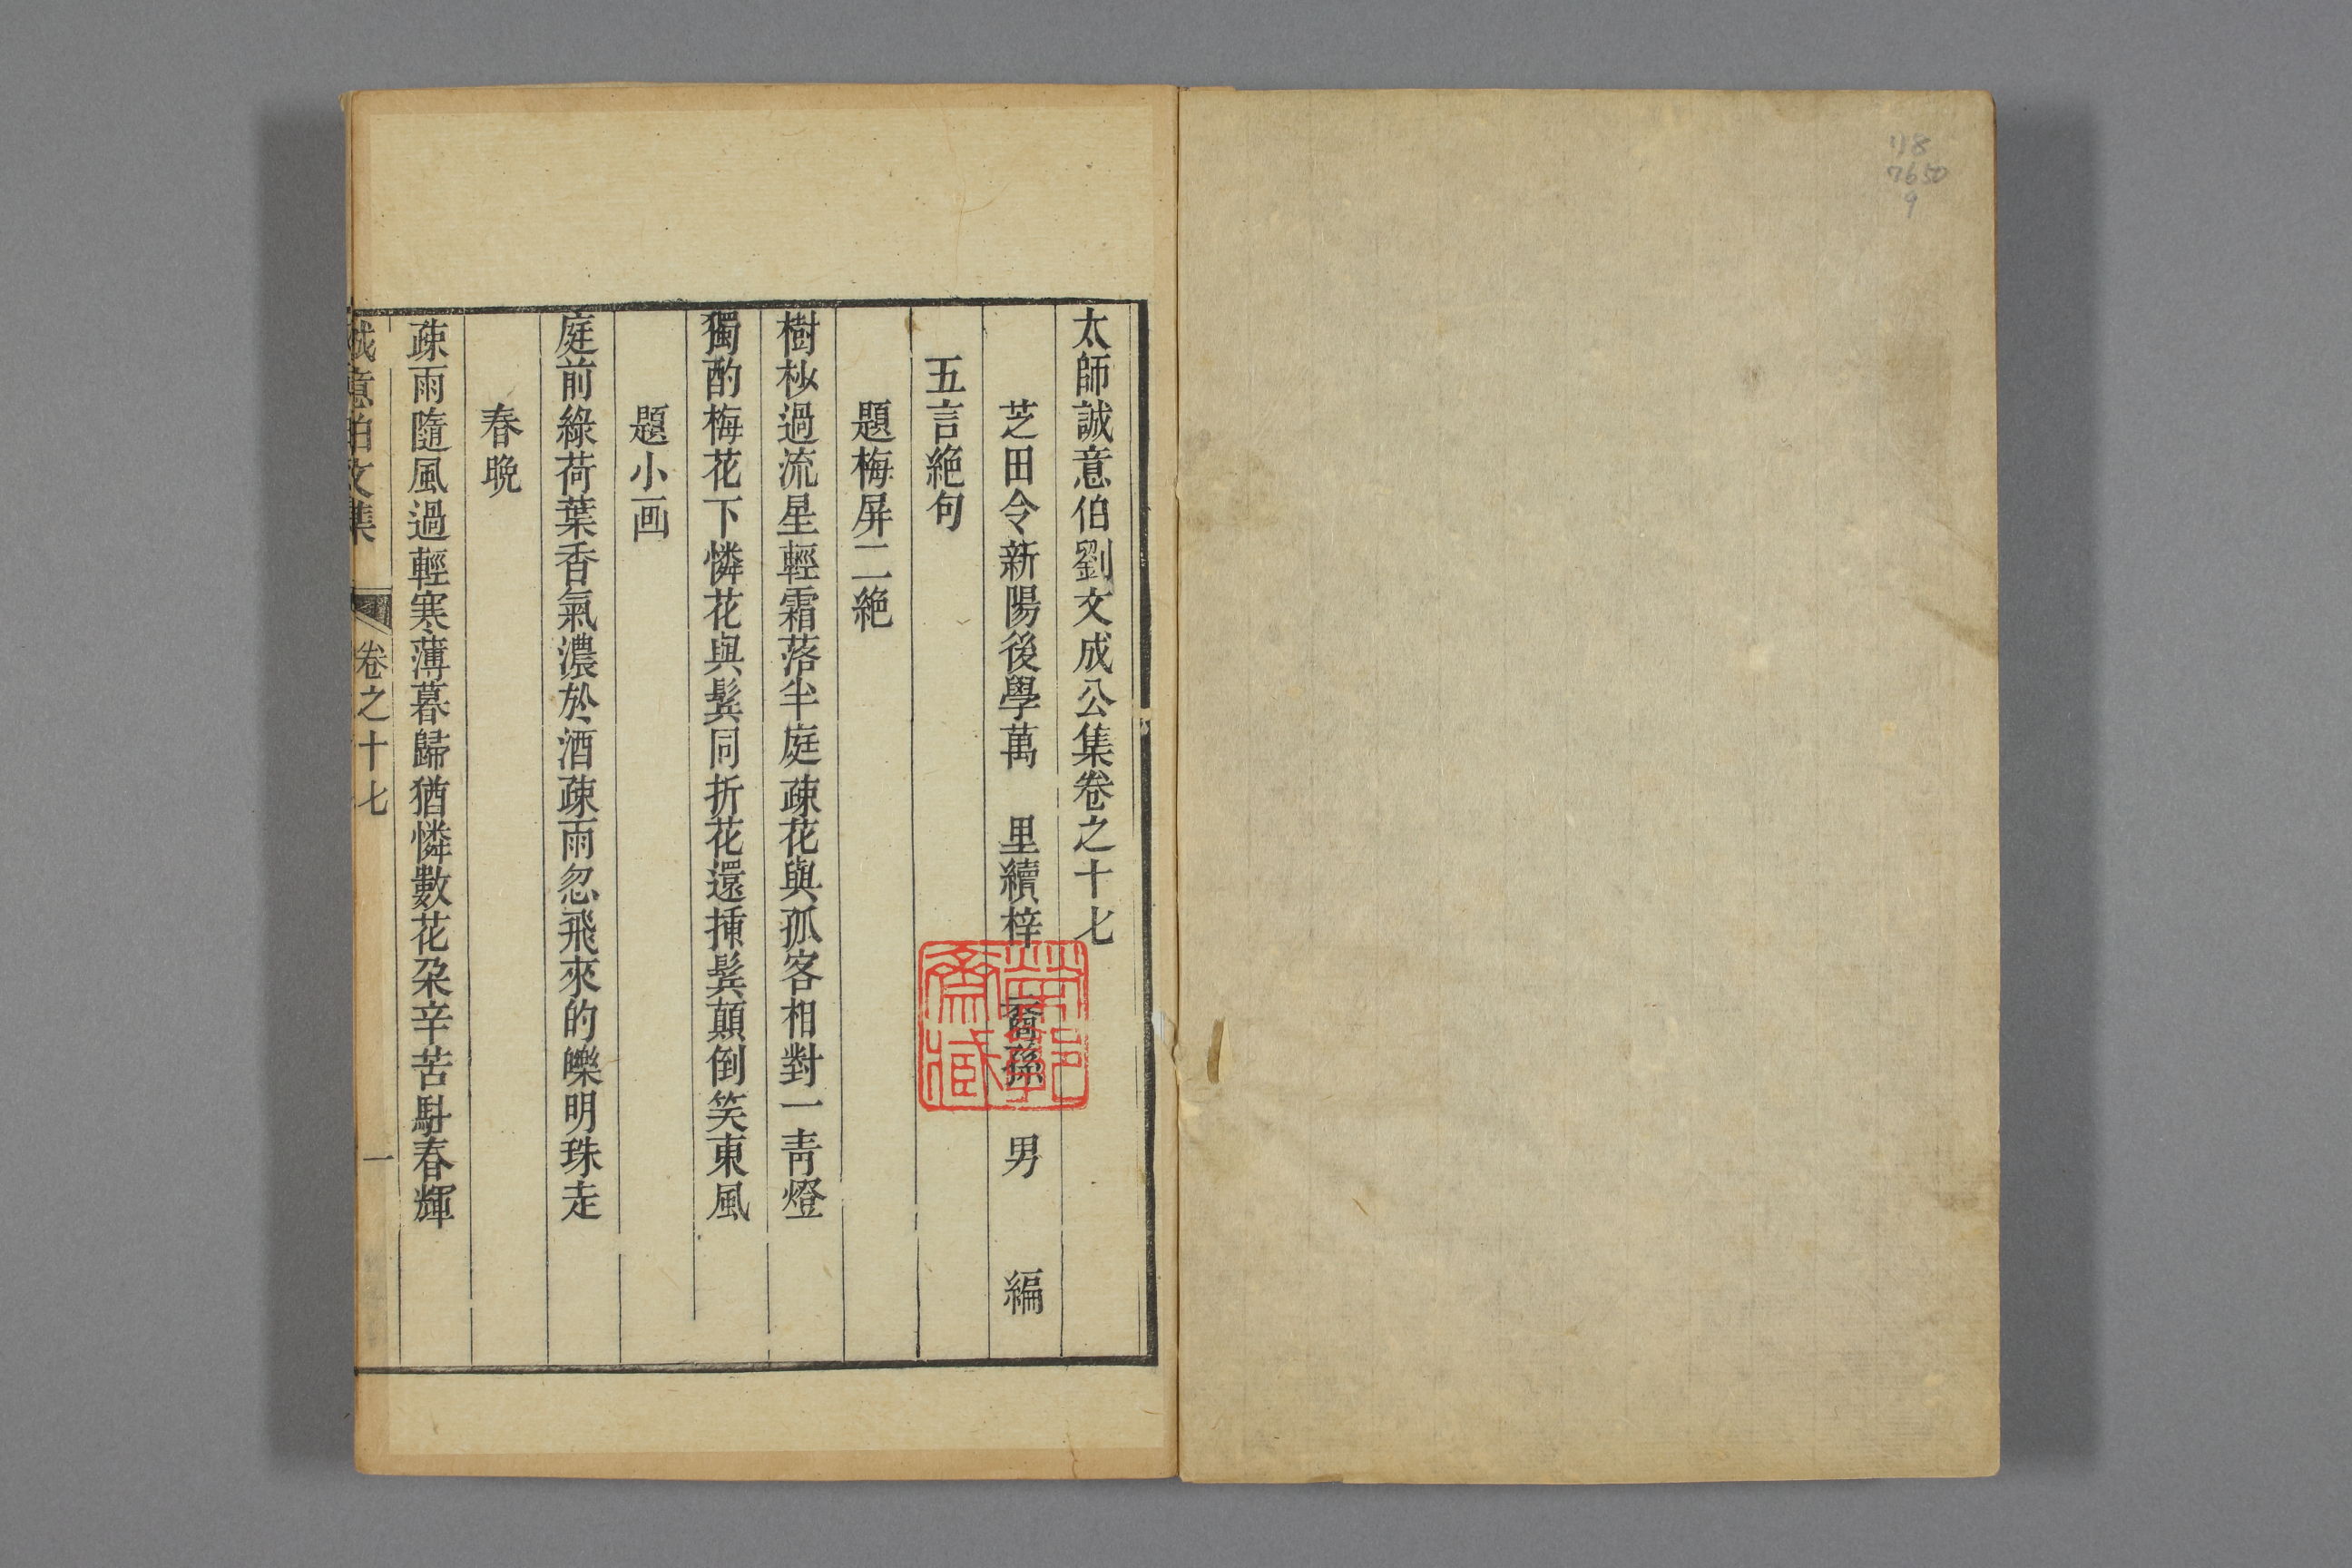 118
7650
9
太師誠意伯劉文成公集卷之十七
芝田令新陽後學萬　里續梓　裔孫　男　編
五言絶句
題梅屏二絶
樹杪過流星輕霜落半庭疎花與孤客相對一青燈
獨酌梅花下憐花與鬓同折花還揷鬓顛倒笑東風
題小画
庭前綠荷葉香氣濃於酒疎雨忽飛來的皪明珠走
春晩
疎雨隨風過輕寒薄暮歸猶憐數花朶辛苦駐春輝
誠意伯文集　卷之十七　一